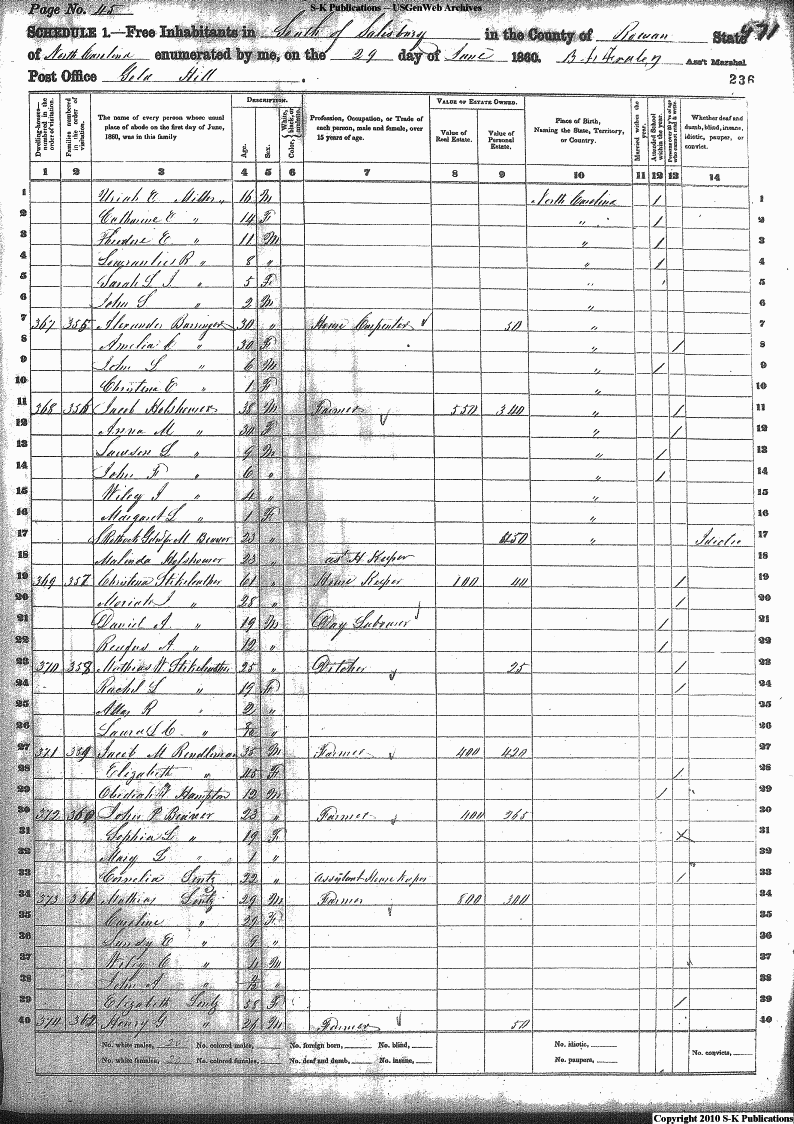 S-K Publications -- USGenWeb Archives
Page No. 45
SCHEDULE 1.—Free Inhabitants in South of Salisbury in the County of Rowan State
of North Carolina enumerated by me, on the 29 day of June 1860. Ass't Marshal
Post Office Gold Hill 236
Dwelling-houses—numbered in the order of visitation. Families numbered in the order of visitation. The name of every person whose usual place of abode on the first day of June, 1860, was in this family DESCRIPTION. Age. Sex. Color, White, black, or mulatto. Profession, Occupation, or Trade of each person, male and female, over 15 years of age. VALUE OF ESTATE OWNED. Value of Real Estate. Value of Personal Estate. Place of Birth, Naming the State, Territory, or Country. Married within the year. Attended School within the year. Persons over 20 y'rs of age who cannot read & write. Whether deaf and dumb, blind, insane, idiotic, pauper, or convict.
1 2 3 4 5 6 7 8 9 10 11 12 13 14
1 Uriah E Miller 16 M North Carolina / 1
2 Catharine E " 14 F " / 2
3 Theodore E " 11 M " / 3
4 R " 8 " " / 4
5 Sarah L J " 5 F " 5
6 John S " 2 M " 6
7 367 355 Alexander Barringer 30 " House Carpenter 50 " 7
8 Amelia C " 30 F " / 8
9 John L " 6 M " / 9
10 Christina E " 1 F " 10
11 368 356 Jacob Holshouser 38 M Farmer 550 340 " / 11
12 Anna M " 30 F " / 12
13 Lawson L " 9 M " / 13
14 John F " 6 " " / 14
15 Wiley J " 4 " " 15
16 Margaret L " 1 F " 16
17 M Beaver 23 " 450 " 17
18 Malinda Holshouser 23 " ast H Keeper 18
19 369 357 Christena Stikeleather 61 " House Keeper 100 40 / 19
20 Moriah J " 28 " / 20
21 David A " 19 M Day Labourer / 21
22 Reufus A " 12 " / 22
23 370 358 Mathias W Stikeleather 25 " Ditcher 25 / 23
24 Rachel L " 19 F / 24
25 R " 2 " 25
26 Laura S C " " 26
27 371 359 Jacob M Rendleman 35 M Farmer 400 420 27
28 Elizabeth " 45 F / 28
29 Obediah W Hampton 12 M / 29
30 372 360 John P Beaver 23 " Farmer 400 265 30
31 Sophia L " 19 F 31
32 Mary L " 1 " 32
33 Cornelia Lentz 22 " Assistant House Keeper / 33
34 373 361 Mathias Lentz 29 M Farmer 800 300 34
35 Caroline " 29 F 35
36 E " 9 " 36
37 Wiley C " 4 M 37
38 John A " " 38
39 Elizabeth Lentz 58 F / 39
40 374 362 Henry G " 26 M Farmer 50 40
No. white males, 20 No. colored males, No. foreign born, No. blind, No. idiotic, No. convicts,
No. white females, 20 No. colored females, No. deaf and dumb, No. insane, No. paupers,
Copyright 2010 S-K Publications